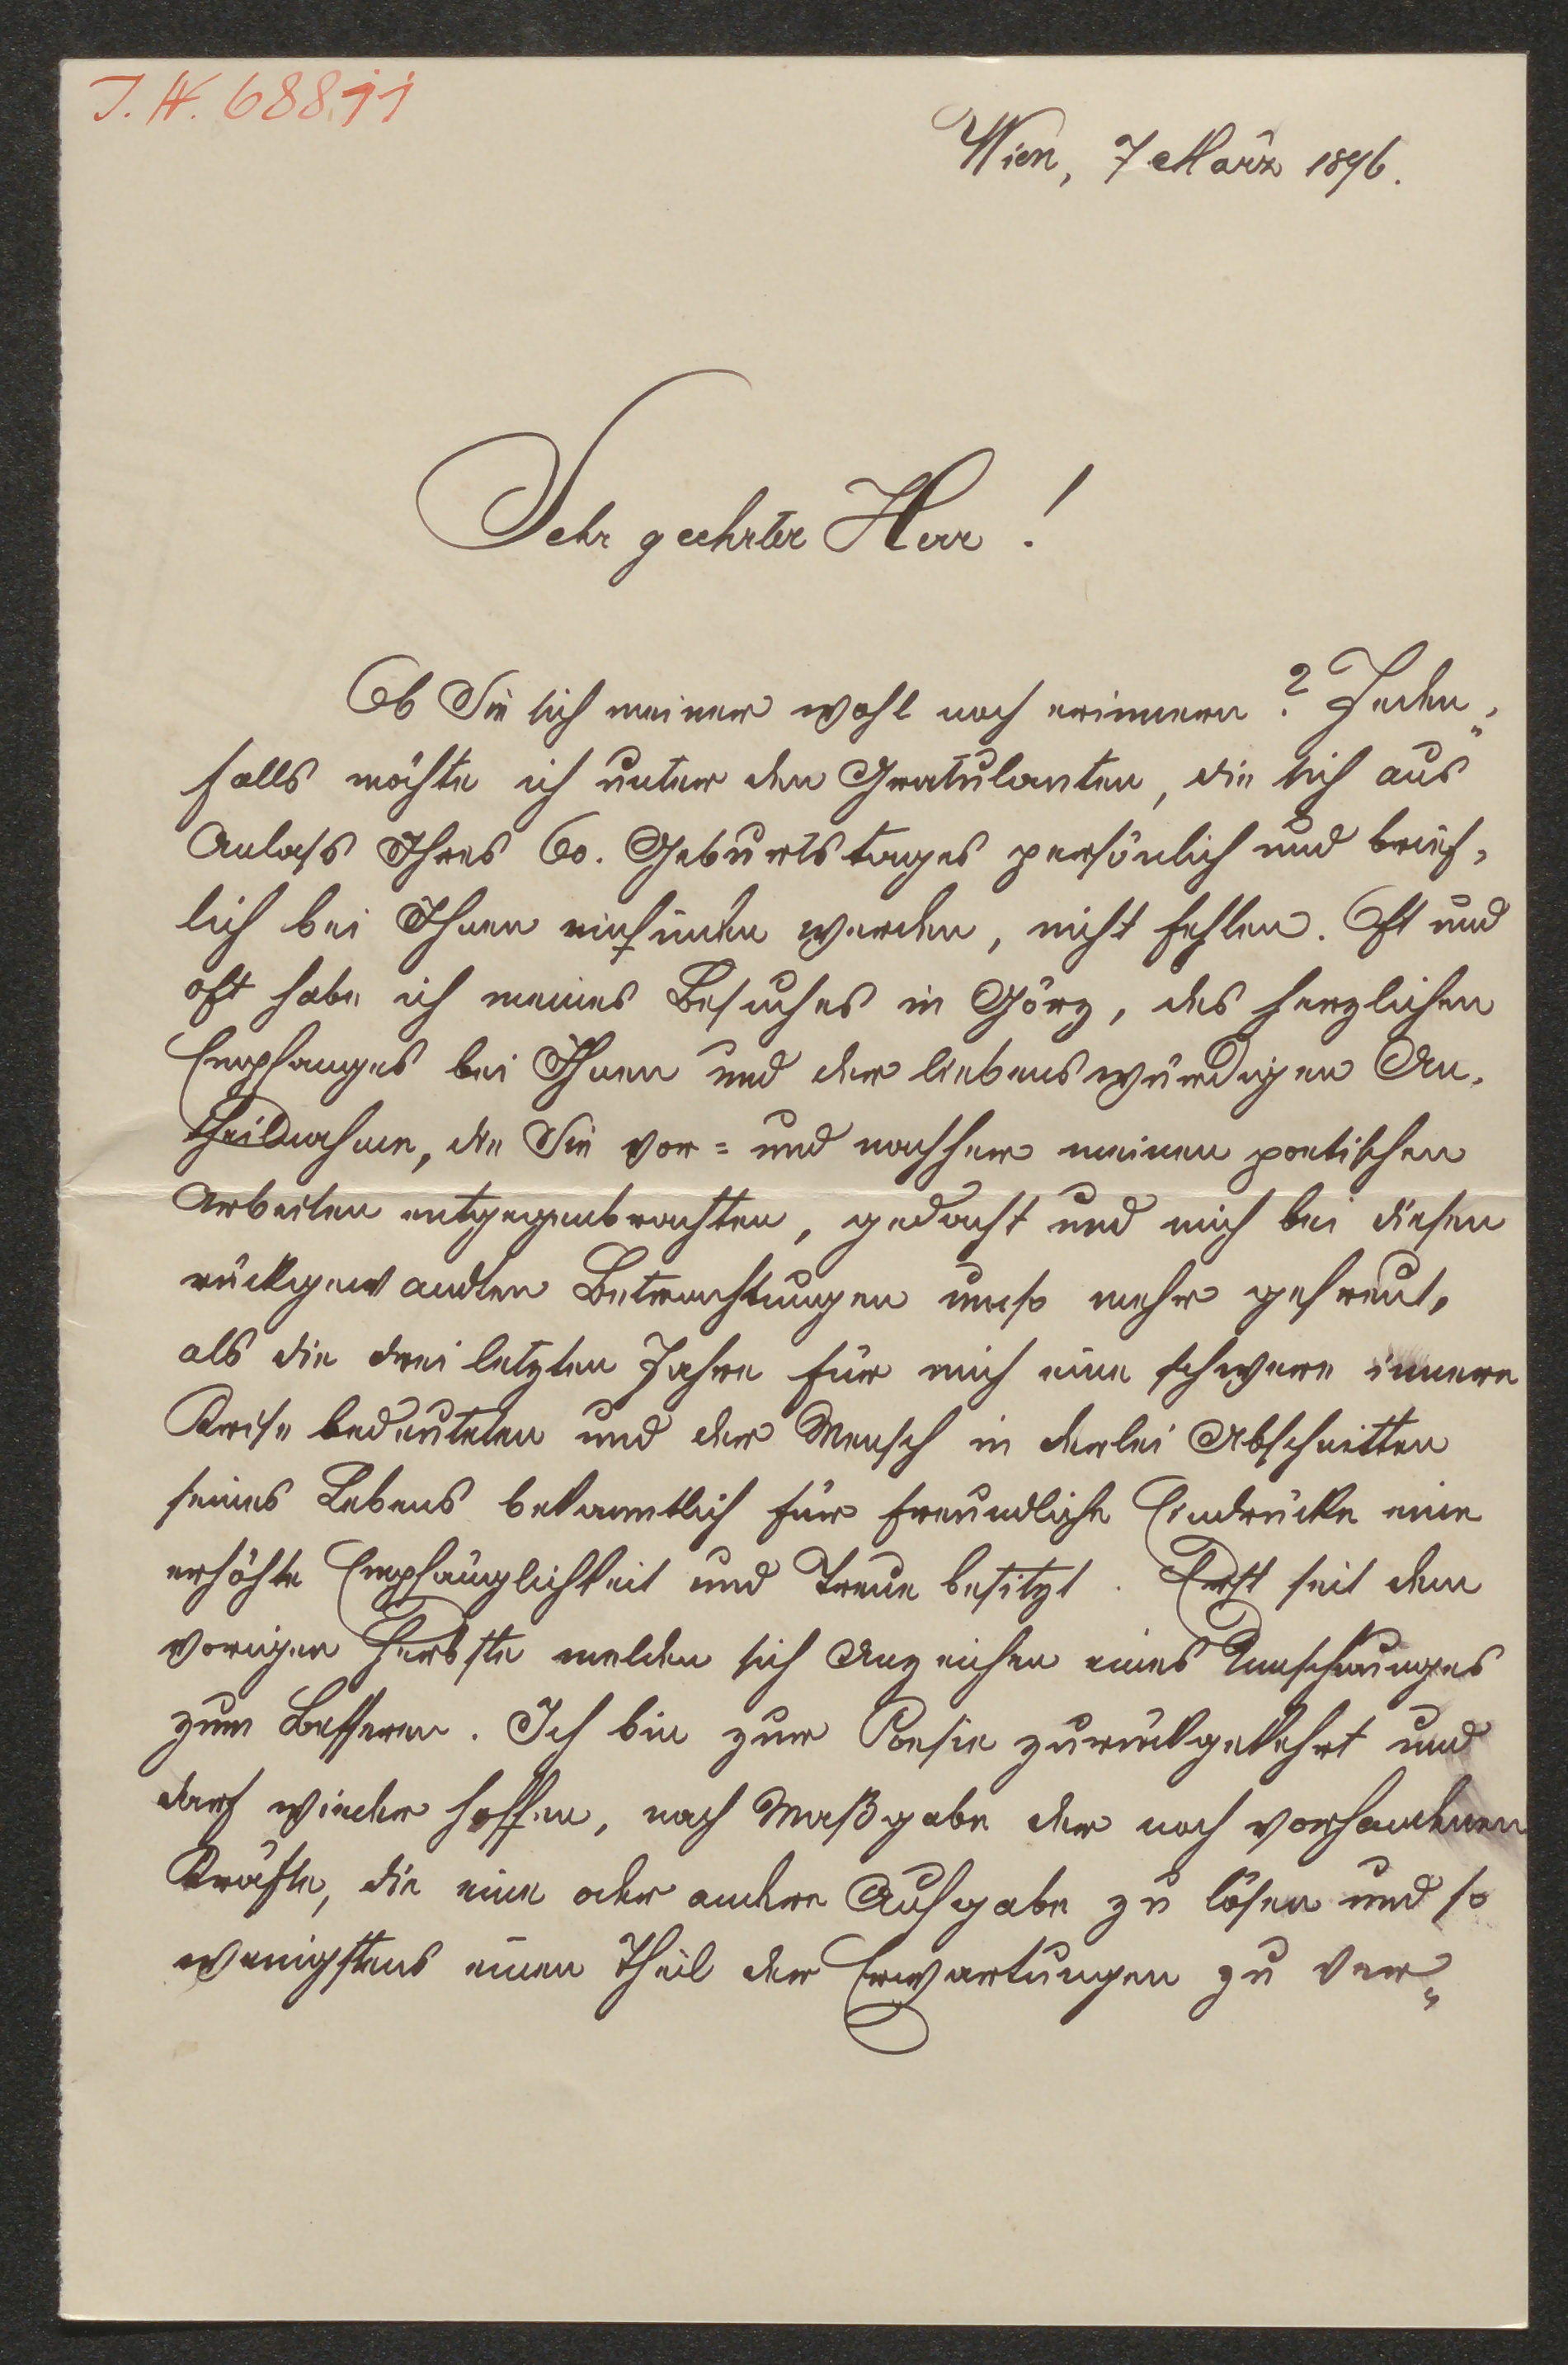 J. N. 68811
Wien, 7 März 1896.
Sehr geehrter Herr!
Ob Sie sich meiner wohl noch erinnern? Jeden„
falls möchte ich unter den Gratulanten, die sich aus
Anlass Ihres 60. Geburtstages persönlich und brief„
lich bei Ihnen einfinden werden, nicht fehlen. Oft und
oft habe ich meines Besuches in Görz, des herzlichen
Empfanges bei Ihnen und der liebenswürdigen An„
theilnahme, die Sie vor= und nachher meinen poetischen
Arbeiten entgegenbrachten, gedacht und mich bei diesen
rückgewandten Betrachtungen umso mehr gefreut,
als die drei letzten Jahre für mich eine schwere innere
Krise bedeuteten und der Mensch in derlei Abschnitten
seines Lebens bekanntlich für freundliche Eindrücke eine
erhöhte Empfänglichkeit und Treue besitzt. Erst seit dem
vorigen Herbste melden sich Anzeichen eines Umschwunges
zum Besseren. Ich bin zur Poesie zurückgekehrt und
darf wieder hoffen, nach Maßgabe der noch vorhandenen
Kräfte, die eine oder andere Aufgabe zu lösen und so
wenigstens einen Theil der Erwartungen zu ver„